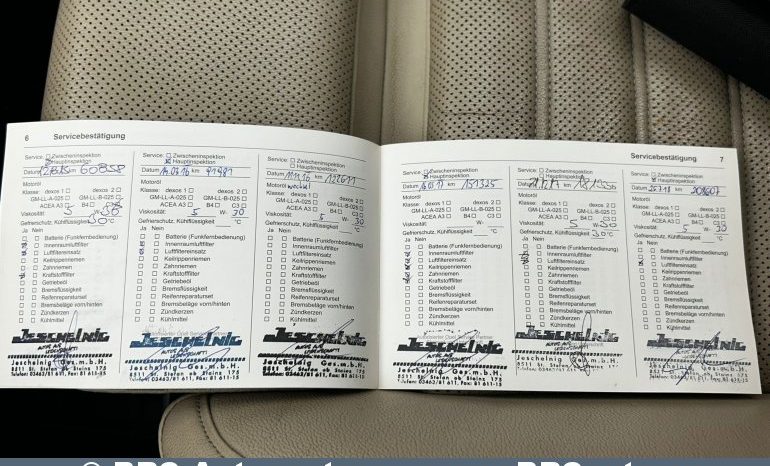 6 Servicebestätigung
Service: Zwischeninspektion
Hauptinspektion
Datum km 60858
Motoröl
Klasse: dexos 1 dexos 2
GM-LL-A-025 GM-LL-B-025
ACEA A3 B4 C3
Viskosität: 5 W- 30
Gefrierschutz, Kühlflüssigkeit 30 °C
Ja Nein
Batterie (Funkfernbedienung)
Innenraumluftfilter
Luftfiltereinsatz
Keilrippenriemen
Zahnriemen
Kraftstofffilter
Getriebeöl
Bremsflüssigkeit
Reifenreparaturset
Bremsbeläge vorn/hinten
Zündkerzen
Kühlmittel
Jescheinig
Jescheinig Ges.m.b.H.
8511 St. Stefan ob Stainz 175
Telefon: 03463/81 611, Fax: 81 611-15
Service: Zwischeninspektion
Hauptinspektion
Datum km 91981
Motoröl
Klasse: dexos 1 dexos 2
GM-LL-A-025 GM-LL-B-025
ACEA A3 B4 C3
Viskosität: 5 W- 30
Gefrierschutz, Kühlflüssigkeit °C
Ja Nein
Batterie (Funkfernbedienung)
Innenraumluftfilter
Luftfiltereinsatz
Keilrippenriemen
Zahnriemen
Kraftstofffilter
Getriebeöl
Bremsflüssigkeit
Reifenreparaturset
Bremsbeläge vorn/hinten
Zündkerzen
Kühlmittel
Jescheinig
Jescheinig Ges.m.b.H.
8511 St. Stefan ob Stainz 175
Telefon: 03463/81 611, Fax: 81 611-15
Service: Zwischeninspektion
Hauptinspektion
Datum km
Motoröl
Klasse: dexos 1 dexos 2
GM-LL-A-025 GM-LL-B-025
ACEA A3 B4 C3
Viskosität: 5 W- 30
Gefrierschutz, Kühlflüssigkeit °C
Ja Nein
Batterie (Funkfernbedienung)
Innenraumluftfilter
Luftfiltereinsatz
Keilrippenriemen
Zahnriemen
Kraftstofffilter
Getriebeöl
Bremsflüssigkeit
Reifenreparaturset
Bremsbeläge vorn/hinten
Zündkerzen
Kühlmittel
Jescheinig
Jescheinig Ges.m.b.H.
8511 St. Stefan ob Stainz 175
Telefon: 03463/81 611, Fax: 81 611-15
Servicebestätigung 7
Service: Zwischeninspektion
Hauptinspektion
Datum km 151325
Motoröl
Klasse: dexos 1 dexos 2
GM-LL-A-025 GM-LL-B-025
ACEA A3 B4 C3
Viskosität: 5 W- 30
Gefrierschutz, Kühlflüssigkeit °C
Ja Nein
Batterie (Funkfernbedienung)
Innenraumluftfilter
Luftfiltereinsatz
Keilrippenriemen
Zahnriemen
Kraftstofffilter
Getriebeöl
Bremsflüssigkeit
Reifenreparaturset
Bremsbeläge vorn/hinten
Zündkerzen
Kühlmittel
Jescheinig
Jescheinig Ges.m.b.H.
8511 St. Stefan ob Stainz 175
Telefon: 03463/81 611, Fax: 81 611-15
Service: Zwischeninspektion
Hauptinspektion
Datum km
Motoröl
Klasse: dexos 1 dexos 2
GM-LL-A-025 GM-LL-B-025
ACEA A3 B4 C3
Viskosität: 5 W- 30
Gefrierschutz, Kühlflüssigkeit 30 °C
Ja Nein
Batterie (Funkfernbedienung)
Innenraumluftfilter
Luftfiltereinsatz
Keilrippenriemen
Zahnriemen
Kraftstofffilter
Getriebeöl
Bremsflüssigkeit
Reifenreparaturset
Bremsbeläge vorn/hinten
Zündkerzen
Kühlmittel
Jescheinig
Jescheinig Ges.m.b.H.
8511 St. Stefan ob Stainz 175
Telefon: 03463/81 611, Fax: 81 611-15
Service: Zwischeninspektion
Hauptinspektion
Datum km
Motoröl
Klasse: dexos 1 dexos 2
GM-LL-A-025 GM-LL-B-025
ACEA A3 B4 C3
Viskosität: 5 W- 30
Gefrierschutz, Kühlflüssigkeit °C
Ja Nein
Batterie (Funkfernbedienung)
Innenraumluftfilter
Luftfiltereinsatz
Keilrippenriemen
Zahnriemen
Kraftstofffilter
Getriebeöl
Bremsflüssigkeit
Reifenreparaturset
Bremsbeläge vorn/hinten
Zündkerzen
Kühlmittel
Jescheinig
Jescheinig Ges.m.b.H.
8511 St. Stefan ob Stainz 175
Telefon: 03463/81 611, Fax: 81 611-15